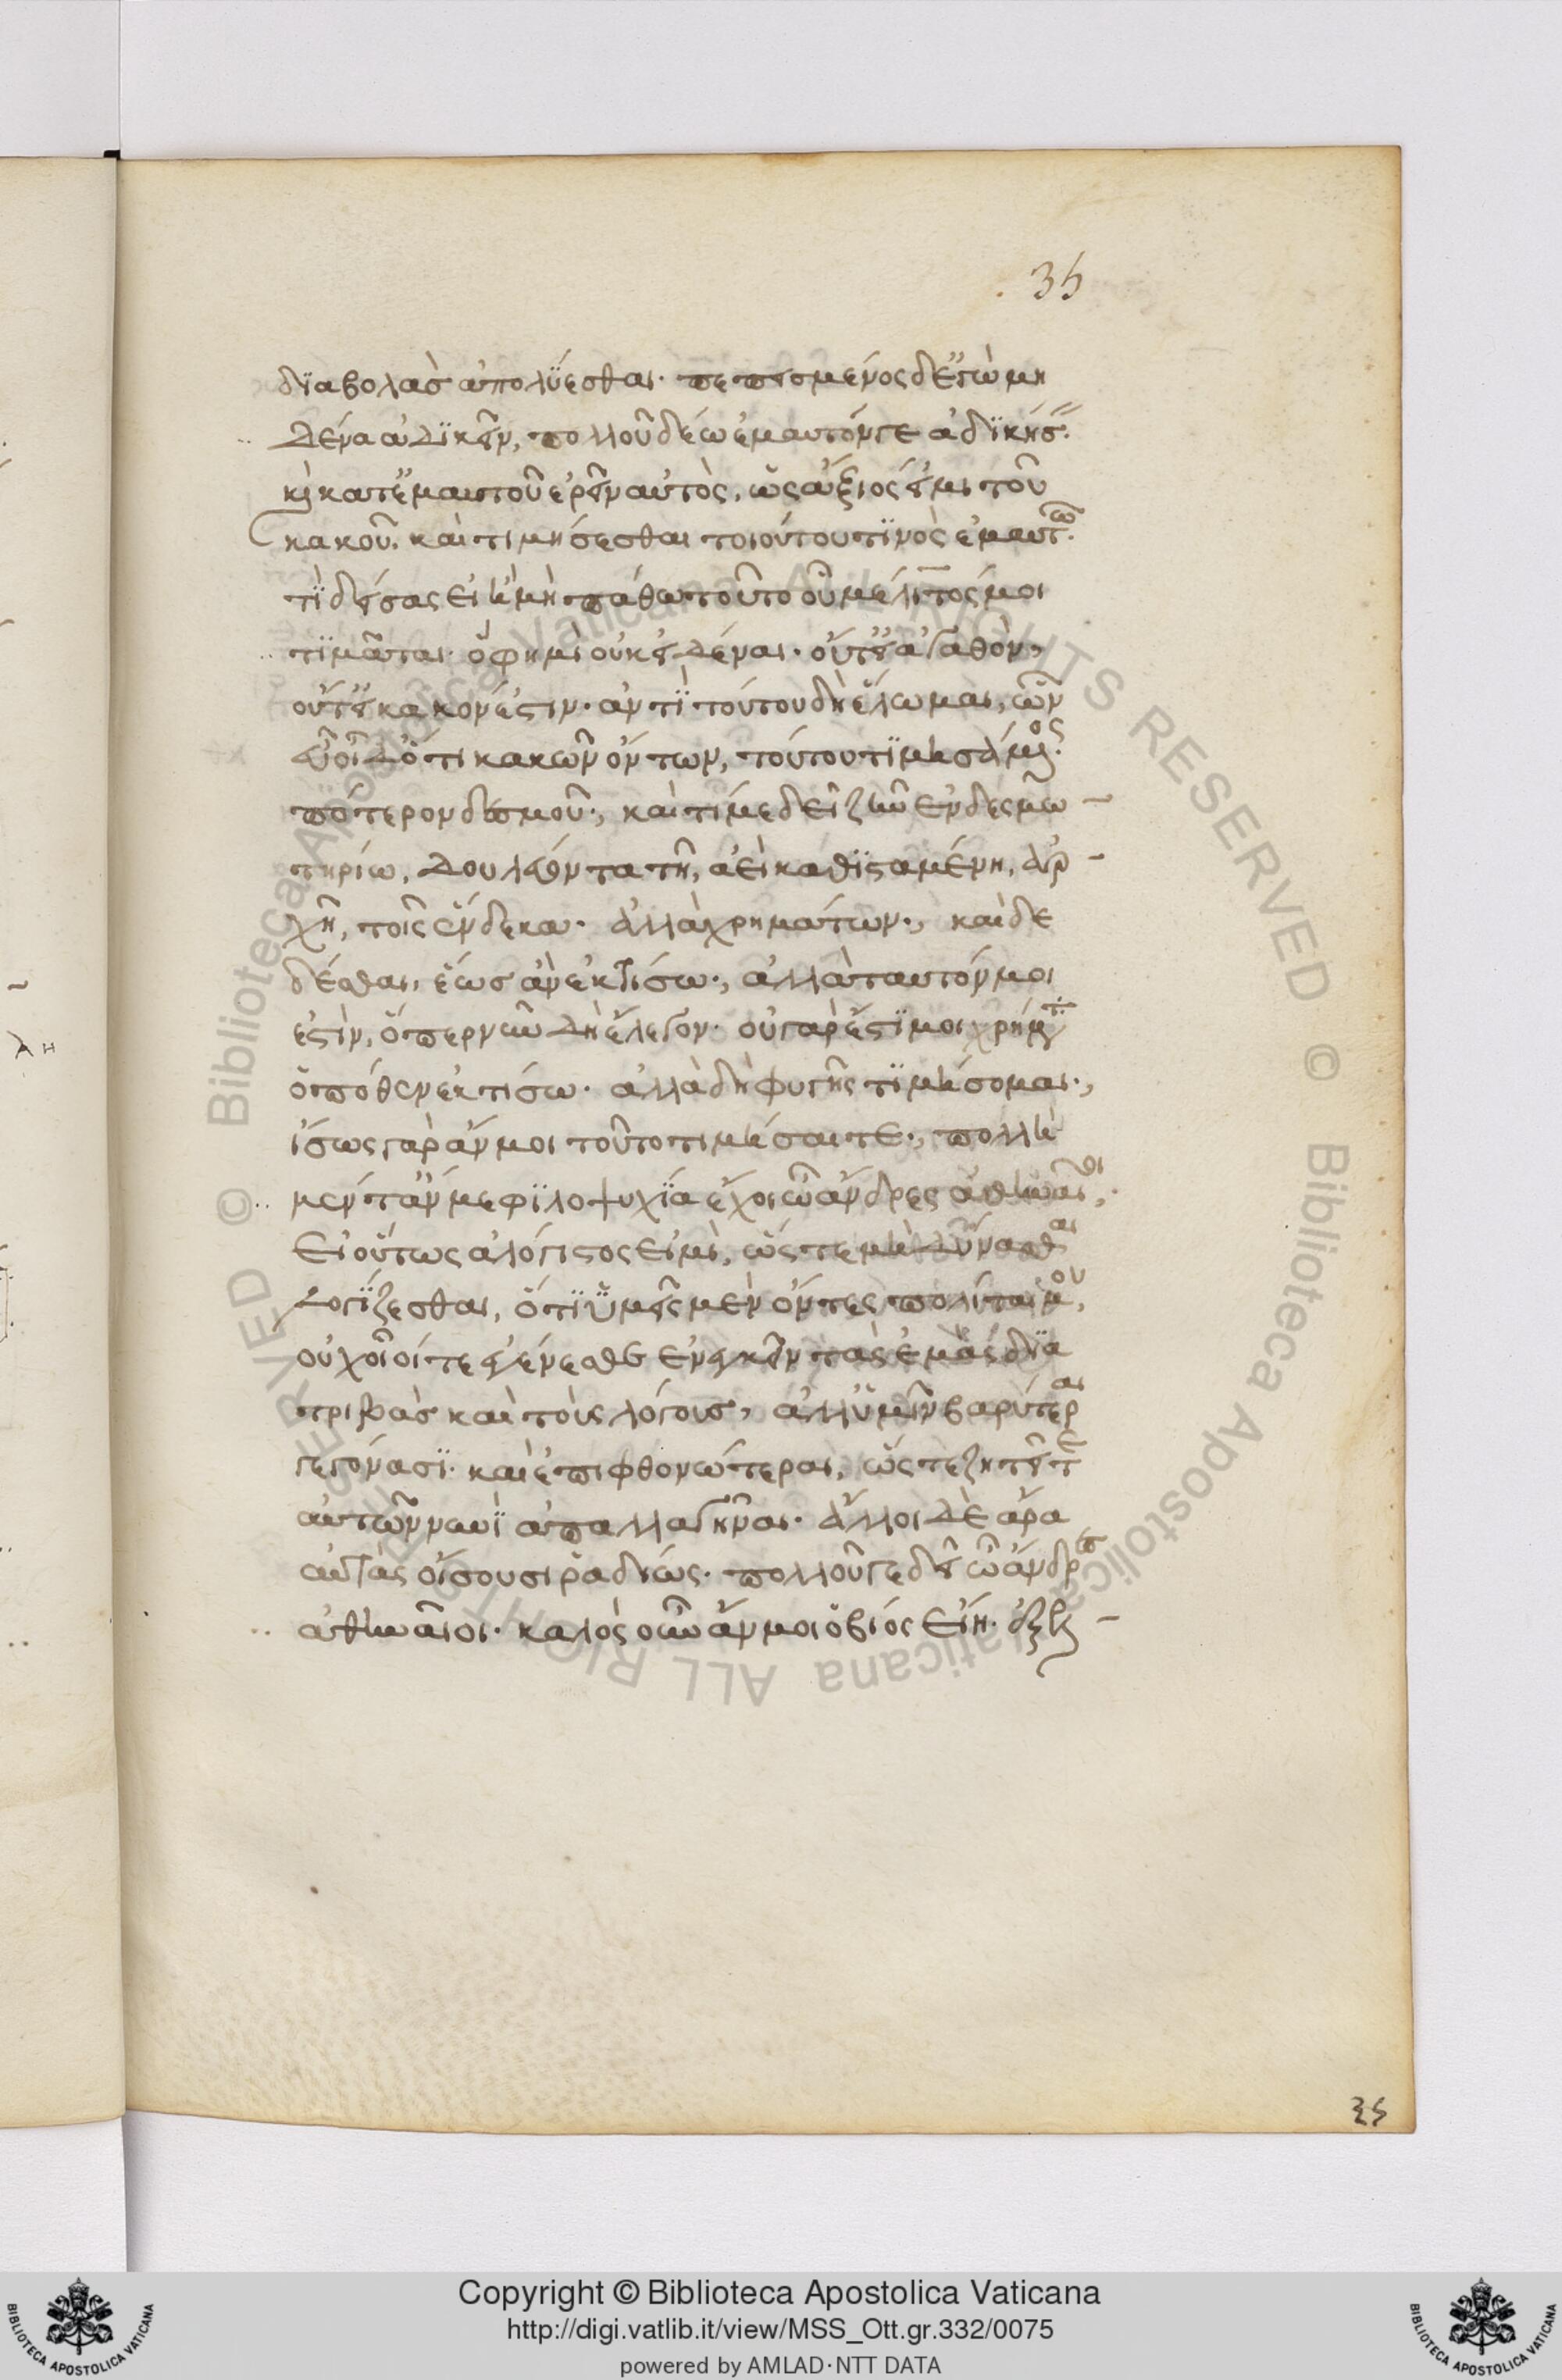 35
διαβολὰσ ἀπολύεσθαι· πεπεισμένος δὲ ἐγὼ μη
δένα ἀδικεῖν, πολλοῦ δέω ἐμαυτόν γε ἀδικήσ.
κ κατ' ἐμαυτοῦ ἐρεῖν αὐτὸς, ὡς ἄξιός εἰμι του
κακοῦ. καὶ τιμήσεσθαι τοιούτου τινὸς ἐμαυτῶ.
τί δείσας εἰ ἢ μὴ πάθω τοῦτο οὗ μέλιτός μοι
τιμᾶται· ὅ φημὶ οὐκ εἰδέναι· οὔτ' εἰ ἀγαθὸν,
οὔτ' εἰ κακόν ἐστιν· ἀντὶ τούτου δὴ ἕλωμαι, ὧν
εὖ οἶδ' ὅτι κακῶν ὄντων, τούτου τιμησάμενος·
πότερον δεσμοῦ·, καὶ τί με δεῖ ζῆν ἐν δεσμω
τηρίω, δουλεύοντα τῆ, ἀεὶ καθισταμένη, ἀρ
χῆ, τοῖς ἕνδεκα· ἀλλὰ χρημάτων·, καὶ δε
δέσθαι, ἕως ἂν ἐκτίσω·, ἀλλὰ ταυτόν μοι
ἐστὶν, ὅπερ νῦν δὴ ἔλεγον· οὐ γὰρ ἔστι μοι χρήματα
ὁπόθεν ἐκτίσω· ἀλλὰ δὴ φυγῆς τιμήσομαι·,
ἴσως γὰρ ἄν μοι τοῦτο τιμήσαιτε·, πολλὴ
μέντἄν με φιλοψυχία ἔχοι ὦ ἄνδρες ἀθηναῖοι,
εἰ οὕτως ἀλόγιστος εἰμὶ, ὥστε μὴ δύνασθαι
λογίζεσθαι, ὅτι ὑμεῖς μὲν ὄντες πολῖταί μου,
οὐχ οἷοί τε ἐγένεσθε ἐνεγκεῖν τὰς ἐμὰς δια
τριβὰσ καὶ τοὺς λόγουσ, ἀλλ' ὑμῖν βαρύτεραι
γεγόνασι· καὶ ἐπιφθονώτεραι, ὥστε ζητεῖτε
αὐτῶν νυνὶ ἀπαλλαγῆναι· ἄλλοι δὲ ἄρα
αὐτὰς οἴσουσι ῥαδίως· πολλοῦ γε δεῖ ὦ ἄνδρες
ἀθηναῖοι· καλὸς οὖν ἄν μοι ὁ βίος εἴη· ἐξελ
35
Copyright © Biblioteca Apostolica Vaticana
http://digi.vatlib.it/view/MSS_Ott.gr.332/0075
powered by AMLAD·NTT DATA
BIBLIOTECA APOSTOLICA VATICANA
BIBLIOTECA APOSTOLICA VATICANA
© Biblioteca Apostolica Vaticana ALL RIGHTS RESERVED © Biblioteca Apostolica Vaticana ALL RIGHTS RESERVED